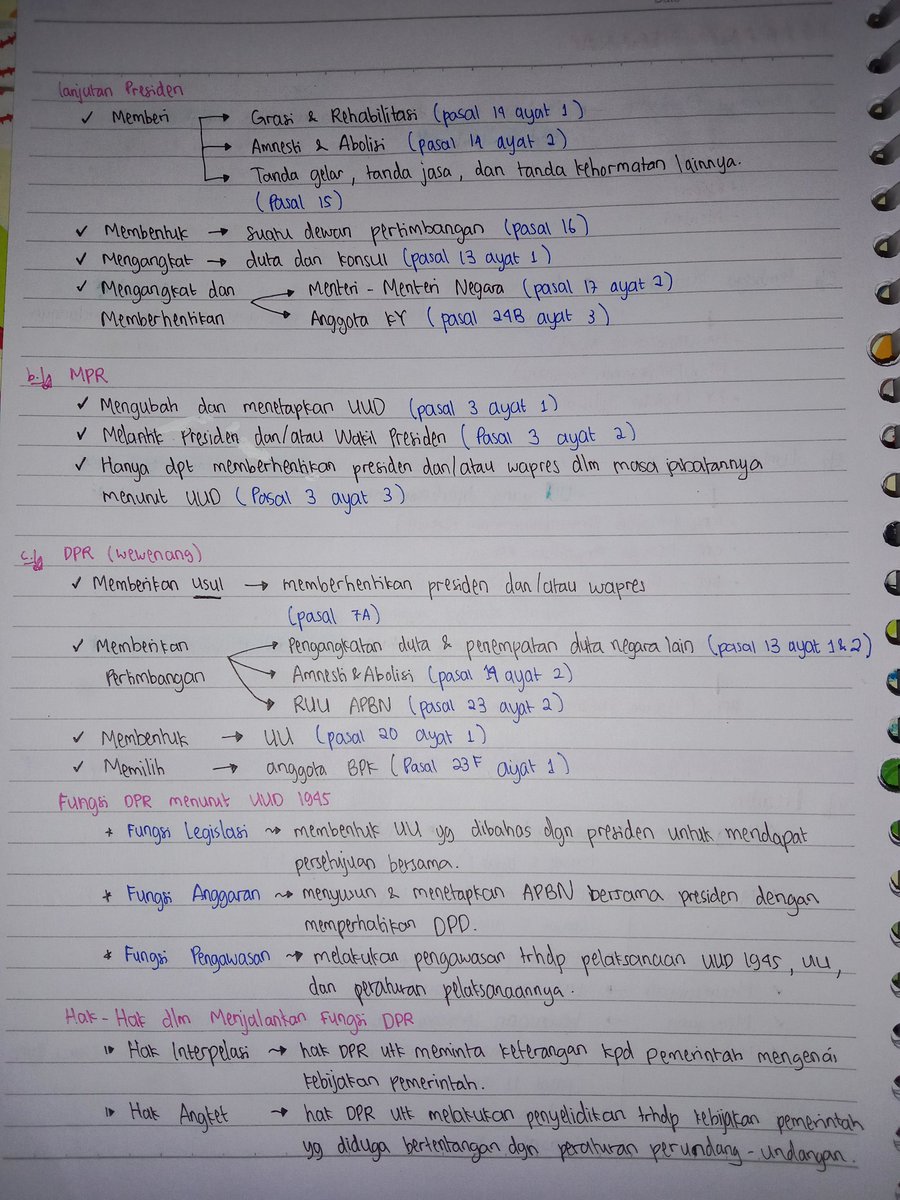 lanjutan Presiden
✓ Memberi → Grasi & Rehabilitasi (pasal 14 ayat 1)
→ Amnesti & Abolisi (pasal 14 ayat 2)
→ Tanda gelar, tanda jasa, dan tanda kehormatan lainnya.
(Pasal 15)
✓ Membentuk → suatu dewan pertimbangan (pasal 16)
✓ Mengangkat → duta dan konsul (pasal 13 ayat 1)
✓ Mengangkat dan → Menteri - Menteri Negara (pasal 17 ayat 2)
Memberhentikan → Anggota KY (pasal 24B ayat 3)
b. MPR
✓ Mengubah dan menetapkan UUD (pasal 3 ayat 1)
✓ Melantik Presiden dan/atau Wakil Presiden (Pasal 3 ayat 2)
✓ Hanya dpt memberhentikan presiden dan/atau wapres dlm masa jabatannya
menurut UUD (Pasal 3 ayat 3)
c. DPR (wewenang)
✓ Memberikan usul → memberhentikan presiden dan/atau wapres
(pasal 7A)
✓ Memberikan → Pengangkatan duta & penempatan duta negara lain (pasal 13 ayat 1&2)
Pertimbangan → Amnesti & Abolisi (pasal 14 ayat 2)
→ RUU APBN (pasal 23 ayat 2)
✓ Membentuk → UU (pasal 20 ayat 1)
✓ Memilih → anggota BPK (Pasal 23F ayat 1)
Fungsi DPR menurut UUD 1945
* Fungsi Legislasi ~> membentuk UU yg dibahas dgn presiden untuk mendapat
persetujuan bersama.
* Fungsi Anggaran ~> menyusun & menetapkan APBN bersama presiden dengan
memperhatikan DPD.
* Fungsi Pengawasan ~> melakukan pengawasan trhdp pelaksanaan UUD 1945, UU,
dan peraturan pelaksanaannya.
Hak - Hak dlm Menjalankan Fungsi DPR
Hak Interpelasi → hak DPR utk meminta keterangan kpd pemerintah mengenai
kebijakan pemerintah.
Hak Angket → hak DPR utk melakukan penyelidikan trhdp kebijakan pemerintah
yg diduga bertentangan dgn peraturan perundang - undangan.